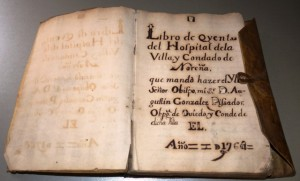 Libro de Qventas
del Hoſpital de la
Villa, y Condado de
Noreña,
que mandò hazer el Yll.mo
Señor Obiſpo, mi S.r D. Au-
guſtin Gonzalez Piſador.
Obp.o de Oviedo, y Conde de
EL.
Año de 1764